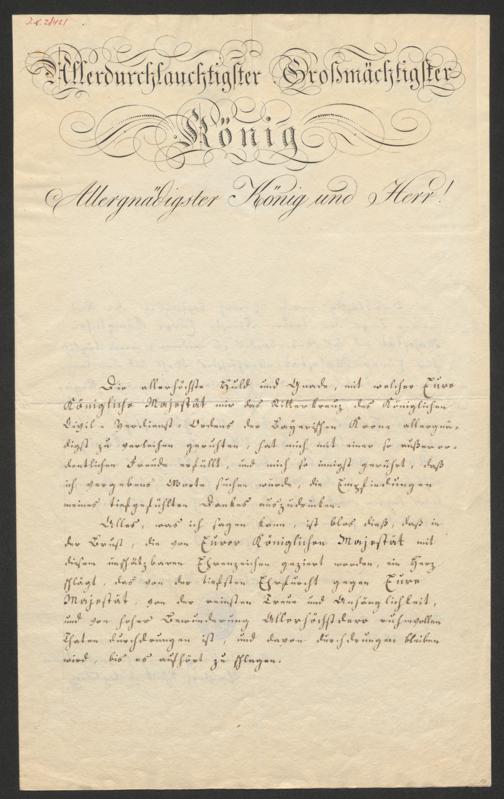 Allerdurchlauchtigster Großmächtigster
König
Allergnädigster König und Herr!
Die allerhöchste Huld und Gnade, mit welcher Eure
Königliche Majestät mir das Ritterkreuz des Königlichen
Civil-Verdienst-Ordens der Bayerischen Krone allergnä-
digst zu verleihen geruhten, hat mich mit einer so außeror-
dentlichen Freude erfüllt, und mich so innigst gerührt, daß
ich vergebens Worte suchen würde, die Empfindungen
meines tiefgefühlten Dankes auszudrücken.
Alles, was ich sagen kann, ist blos dieß, daß in
der Brust, die von Eurer Königlichen Majestät mit
diesem unschätzbaren Ehrenzeichen geziert worden, ein Herz
schlägt, das von der tiefsten Ehrfurcht gegen Eure
Majestät, von der reinsten Treue und Anhänglichkeit,
und von hoher Bewunderung Allerhöchstdero ruhmvollen
Thaten durchdrungen ist, und davon durchdrungen bleiben
wird, bis es aufhört zu schlagen.